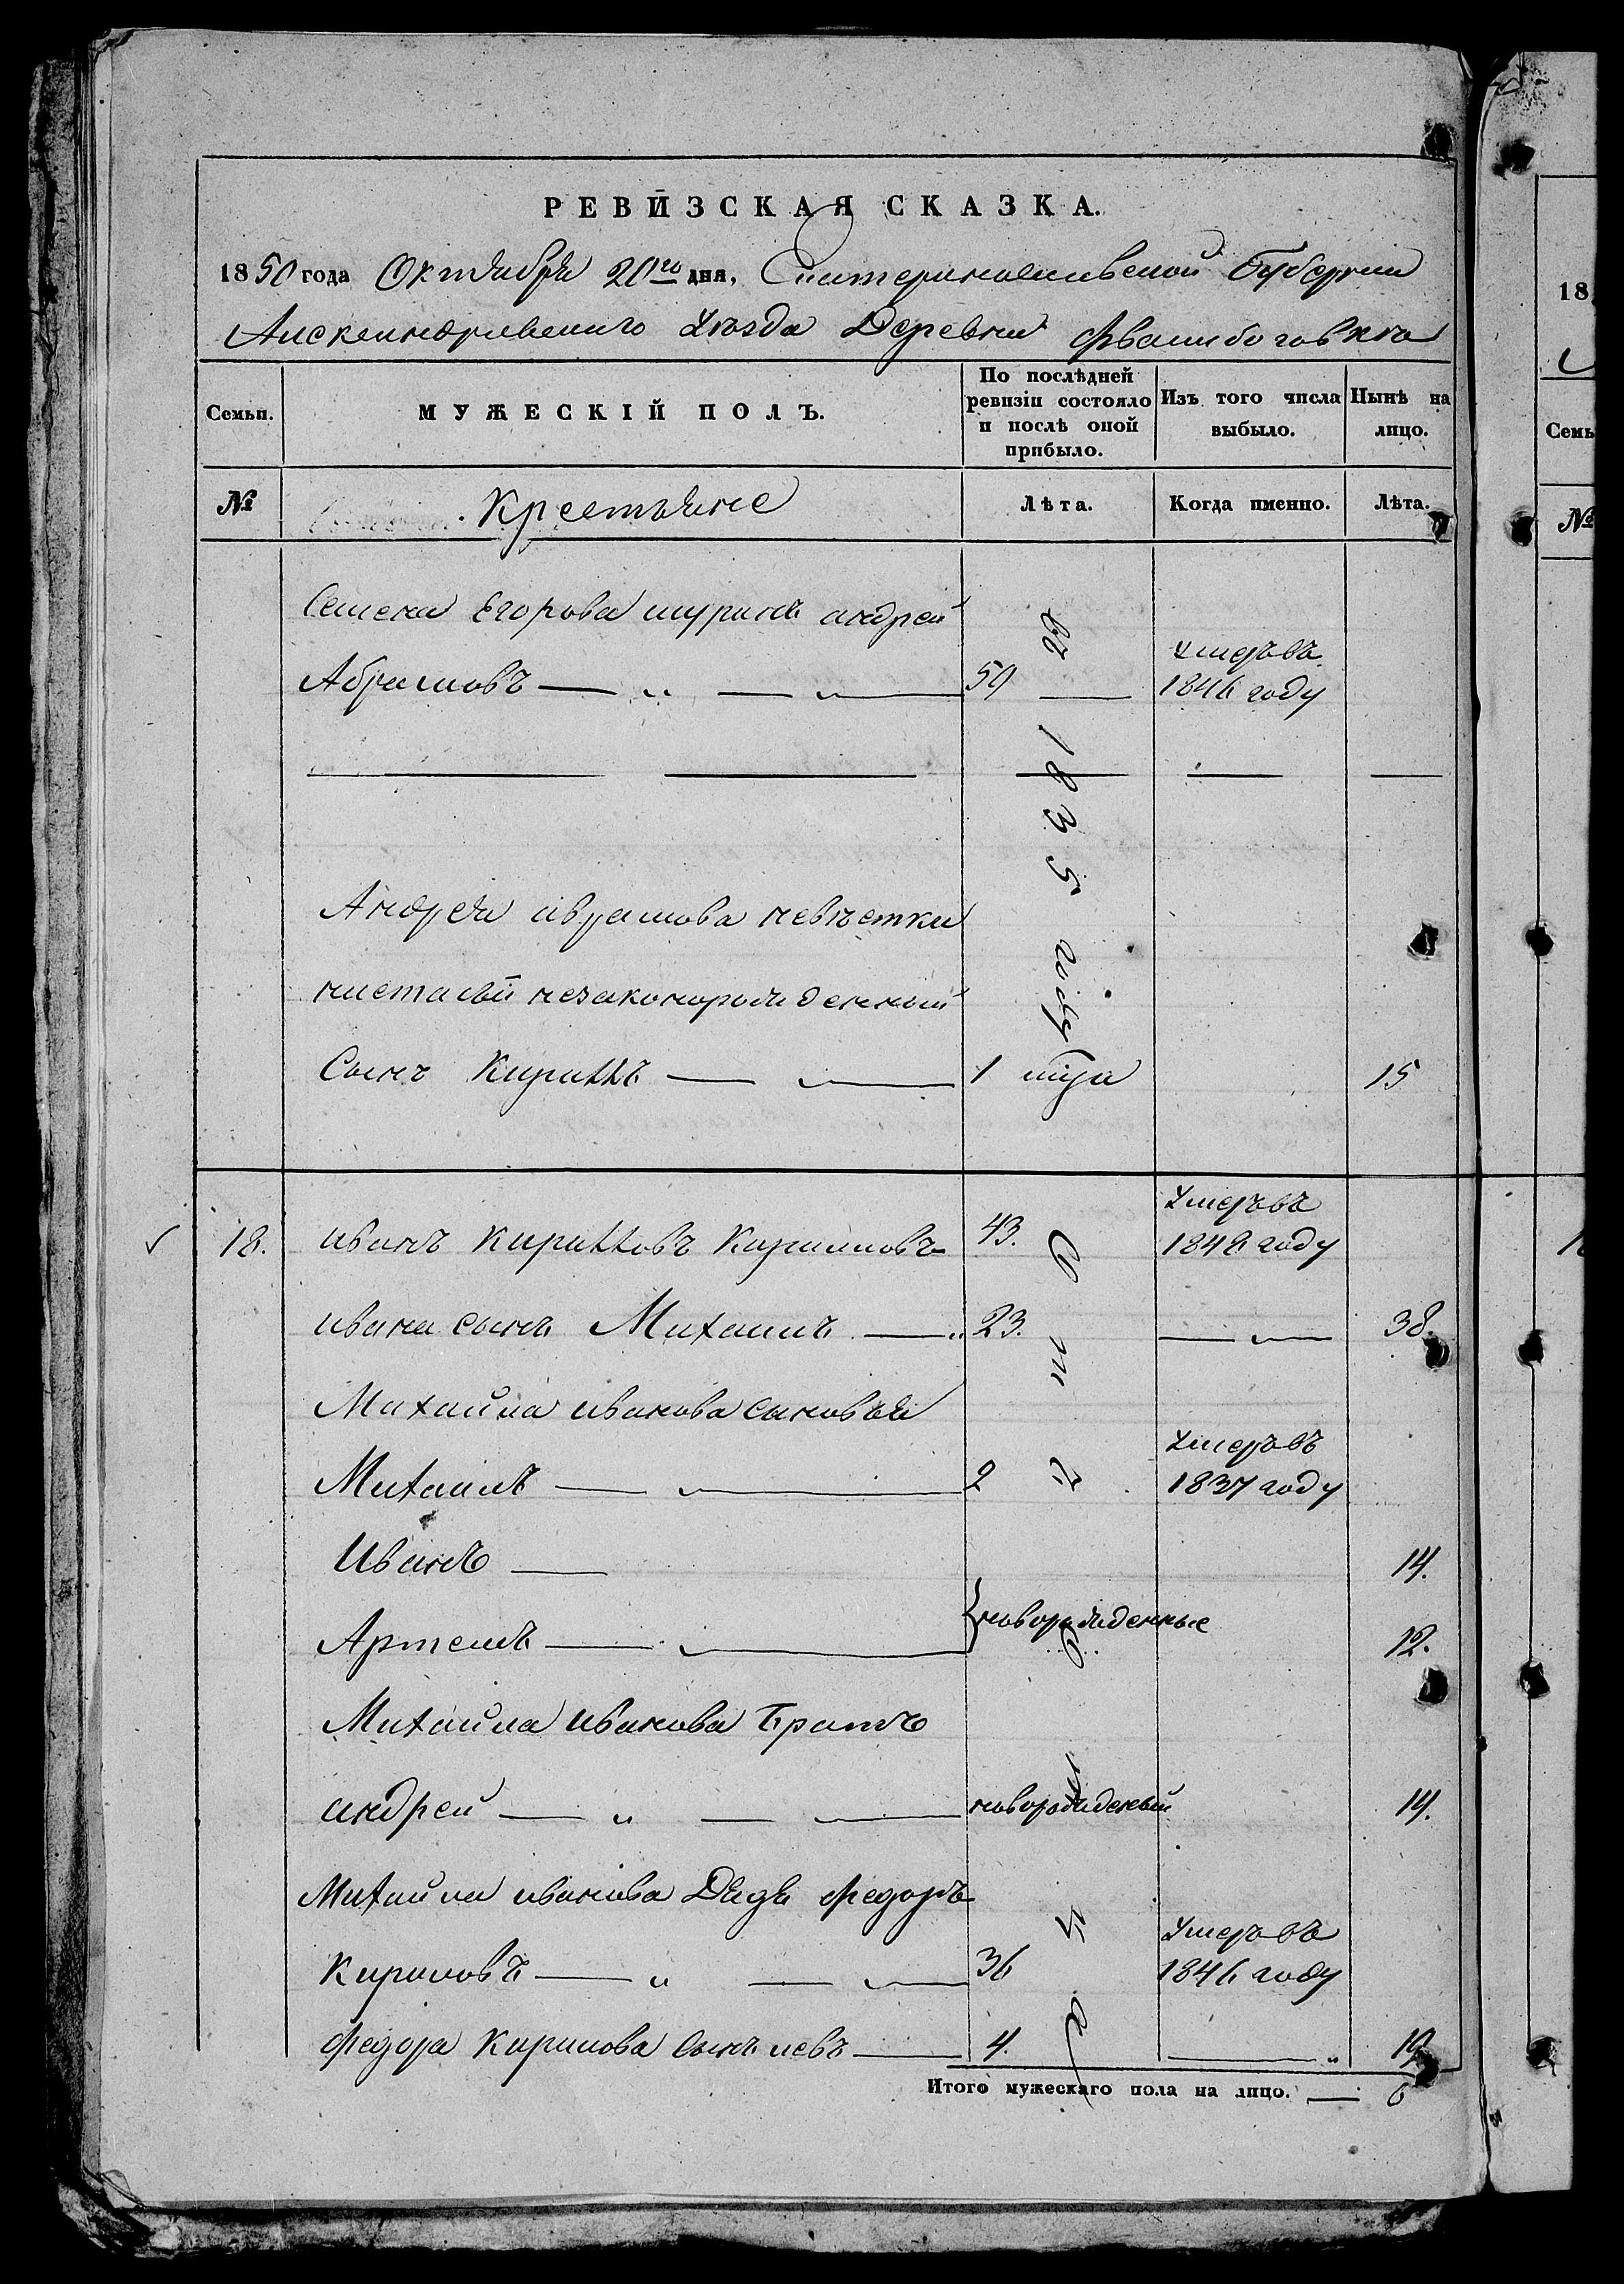 РЕВИЗСКАЯ СКАЗКА.
1850 года Октября 20го дня, Екатеринославской Губернии
Александровского Уѣзда Деревни
Семьи.
МУЖЕСКІЙ ПОЛЪ.
По послѣдней ревизіи состояло и послѣ оной прибыло.
Изъ того числа выбыло.
Нынѣ на лицо.
№
Крестьяне
Лѣта.
Когда именно.
Лѣта.
Семена Егорова шуринъ андрей
Абрамовъ 59 умеръ въ 1846 году
въ 1835 году
Андрея аврамова невѣстки
настасьи незаконорожденный
Сынъ Кириллъ 1 15
18. иванъ Кирилловъ 43. Умеръ въ 1848 году
ивана сынъ Михаилъ 23. 38.
Михайла иванова сыновья
Михаилъ 2 Умеръ въ 1837 году
Иванъ 14.
Артемъ новорожденные 12.
Михайла иванова Братъ
андрей новорожденый 14.
Михайла иванова Дядя федоръ
Кириловъ 36 Умеръ въ 1846 году
федора Кирилова сынъ левъ 4. 19
Итого мужескаго пола на лицо. 6
18
Семь
№